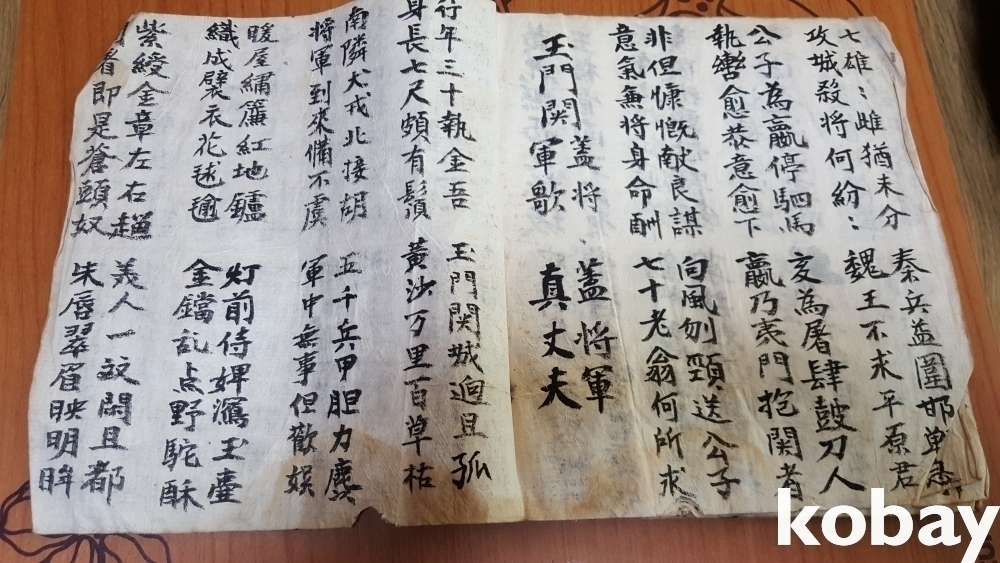 七雄〻雌猶未分
攻城殺將何紛〻
秦兵益圍邯单急
魏王不求平原君
公子為嬴停駟馬
執轡愈恭意愈下
亥為屠肆鼓刀人
嬴乃夷門抱関者
非但慷慨献良謀
意氣兼将身命酬
向風刎頸送公子
七十老翁何所求
玉門関蓋将軍歌
蓋将軍
真丈夫
行年三十執金吾
身長七尺頗有鬚
玉門関城逈且孤
黄沙万里百草枯
南隣犬戎北接胡
将軍到來備不虞
五千兵甲胆力麤
軍中無事但歡娯
暖屋繡簾紅地鑪
織成壁衣花毬毹
灯前侍婢瀉玉壺
金鐺乱点野駝酥
紫綬金章左右趨
者即是蒼頭奴
美人一双閑且都
朱唇翠眉映明眸
kobay